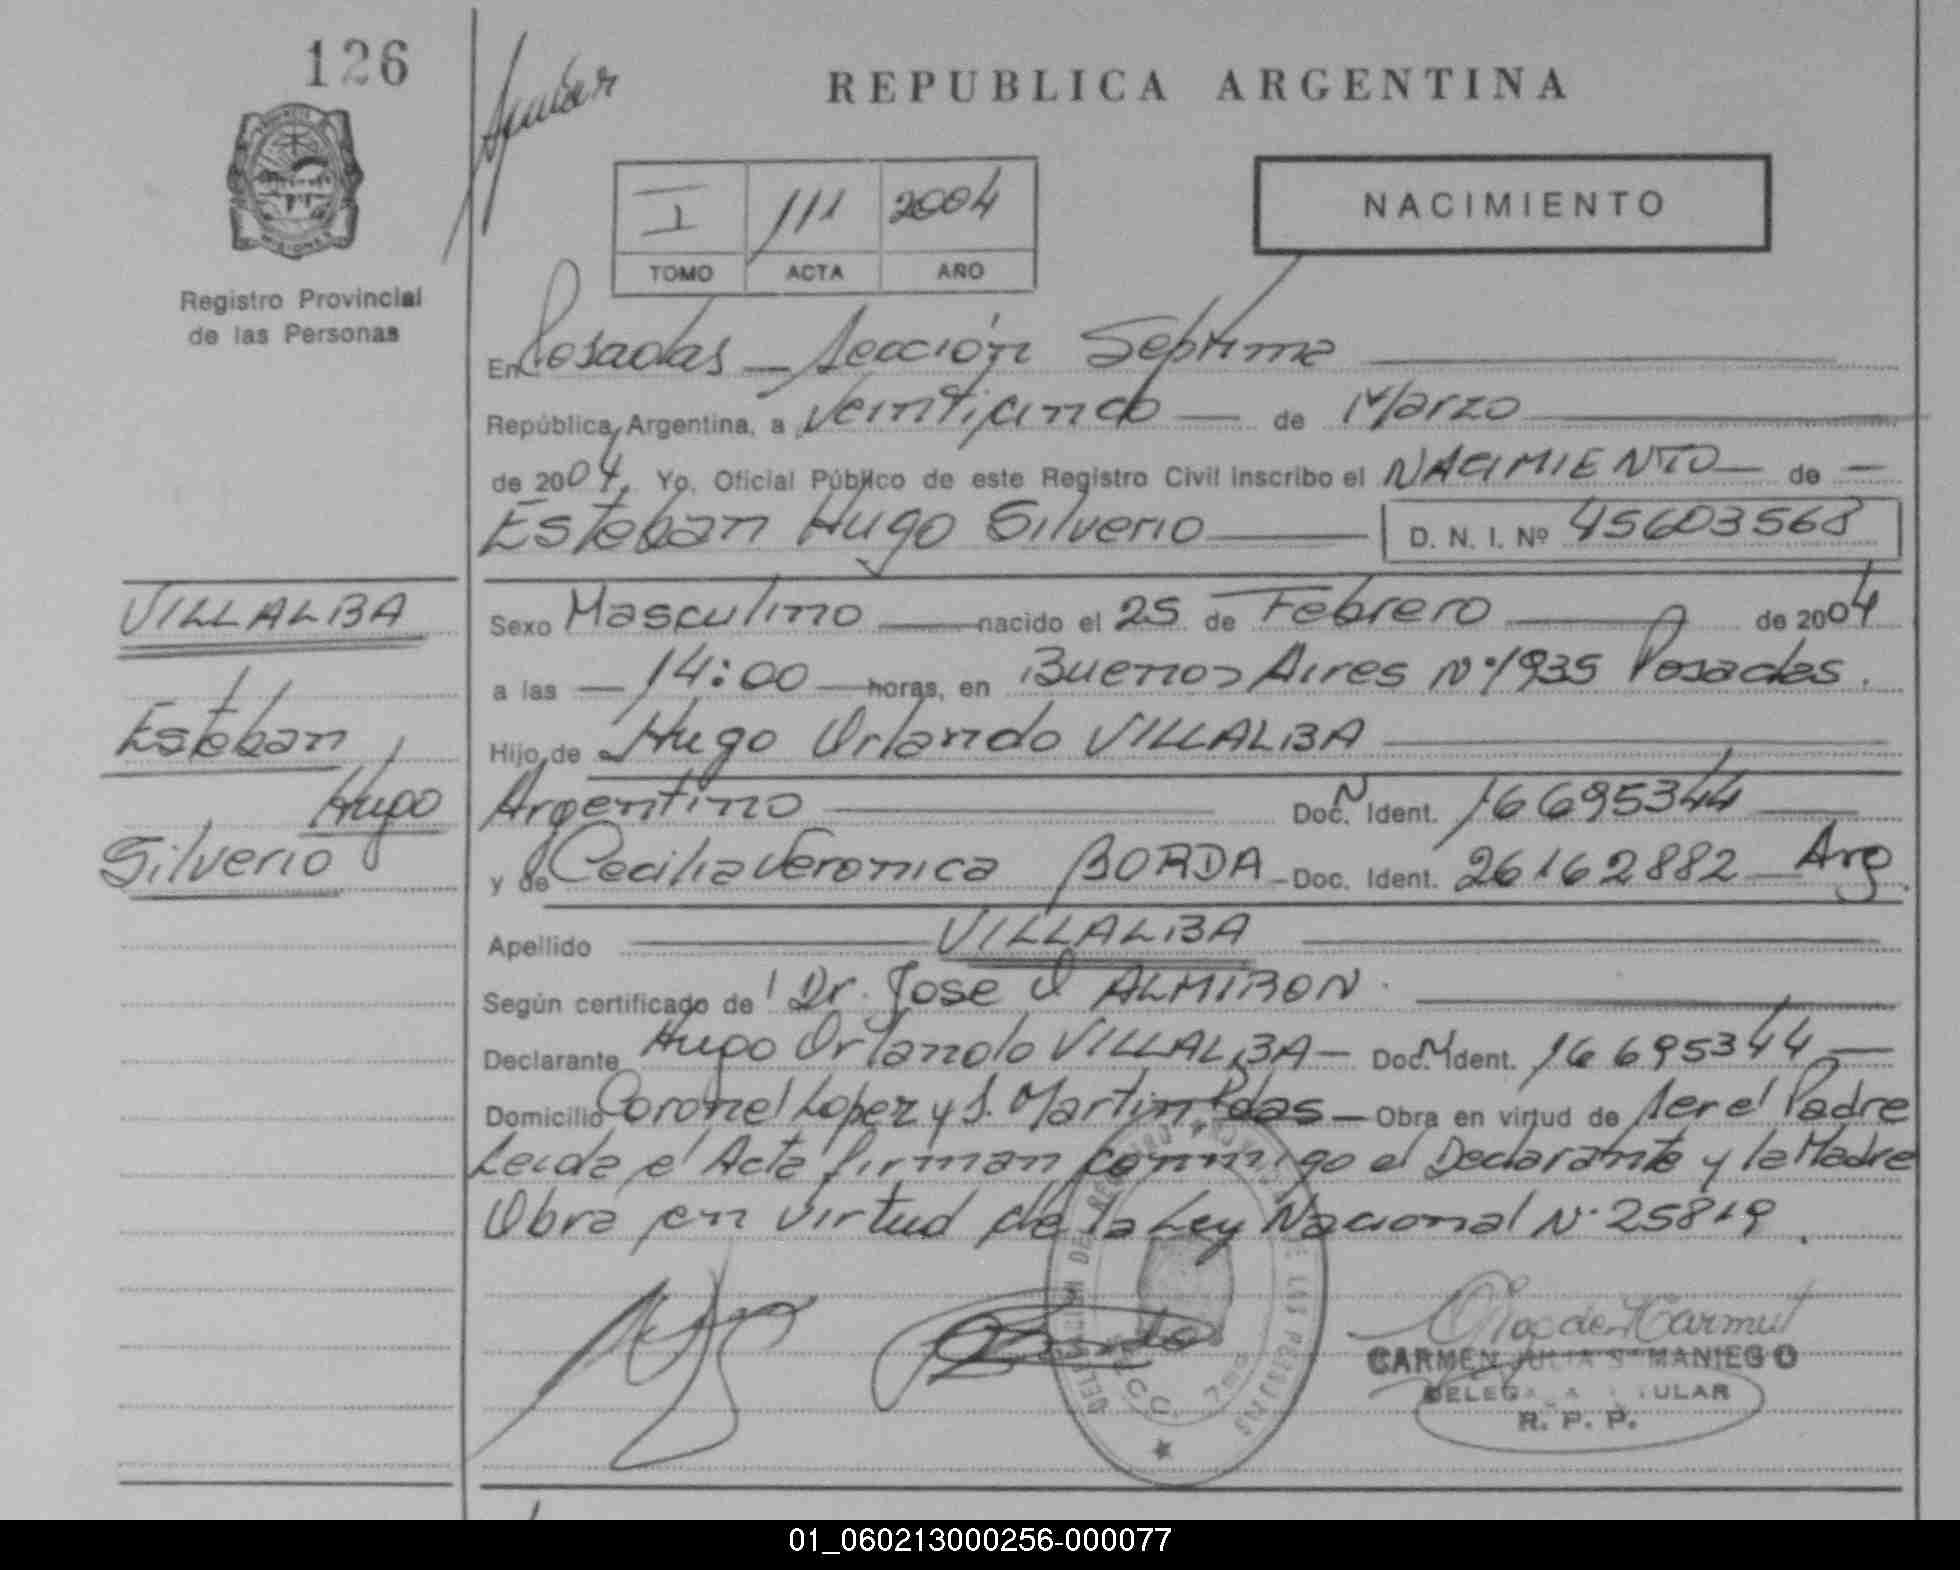 126
Aguiar
REPUBLICA ARGENTINA
I 111 2004
TOMO ACTA AÑO
NACIMIENTO
MISIONES
Registro Provincial
de las Personas
En Posadas — Sección Septima
República Argentina, a Veinticinco — de Marzo
de 2004. Yo, Oficial Público de este Registro Civil inscribo el NACIMIENTO — de —
Esteban Hugo Silverio — D. N. I. Nº 45603568
VILLALBA
Esteban
Hugo
Silverio
Sexo Masculino — nacido el 25 de Febrero — de 2004
a las — 14:00 — horas, en Buenos Aires Nº 1935 Posadas.
Hijo de Hugo Orlando VILLALBA
Argentino — Doc. Ident. 16695344 —
y de Cecilia Veronica BORDA — Doc. Ident. 26162882 — Arg.
Apellido — VILLALBA —
Según certificado de Dr. Jose O ALMIRON.
Declarante Hugo Orlando VILLALBA — Doc. Ident. 16695344 —
Domicilio Coronel Lopez y S. Martin Pdas — Obra en virtud de ser el Padre
Leida el Acta firman conmigo el Declarante y la Madre
Obra en virtud de la Ley Nacional Nº 25819.
CARMEN JULIA SAMANIEGO
DELEGADA TITULAR
R. P. P.
01_060213000256-000077